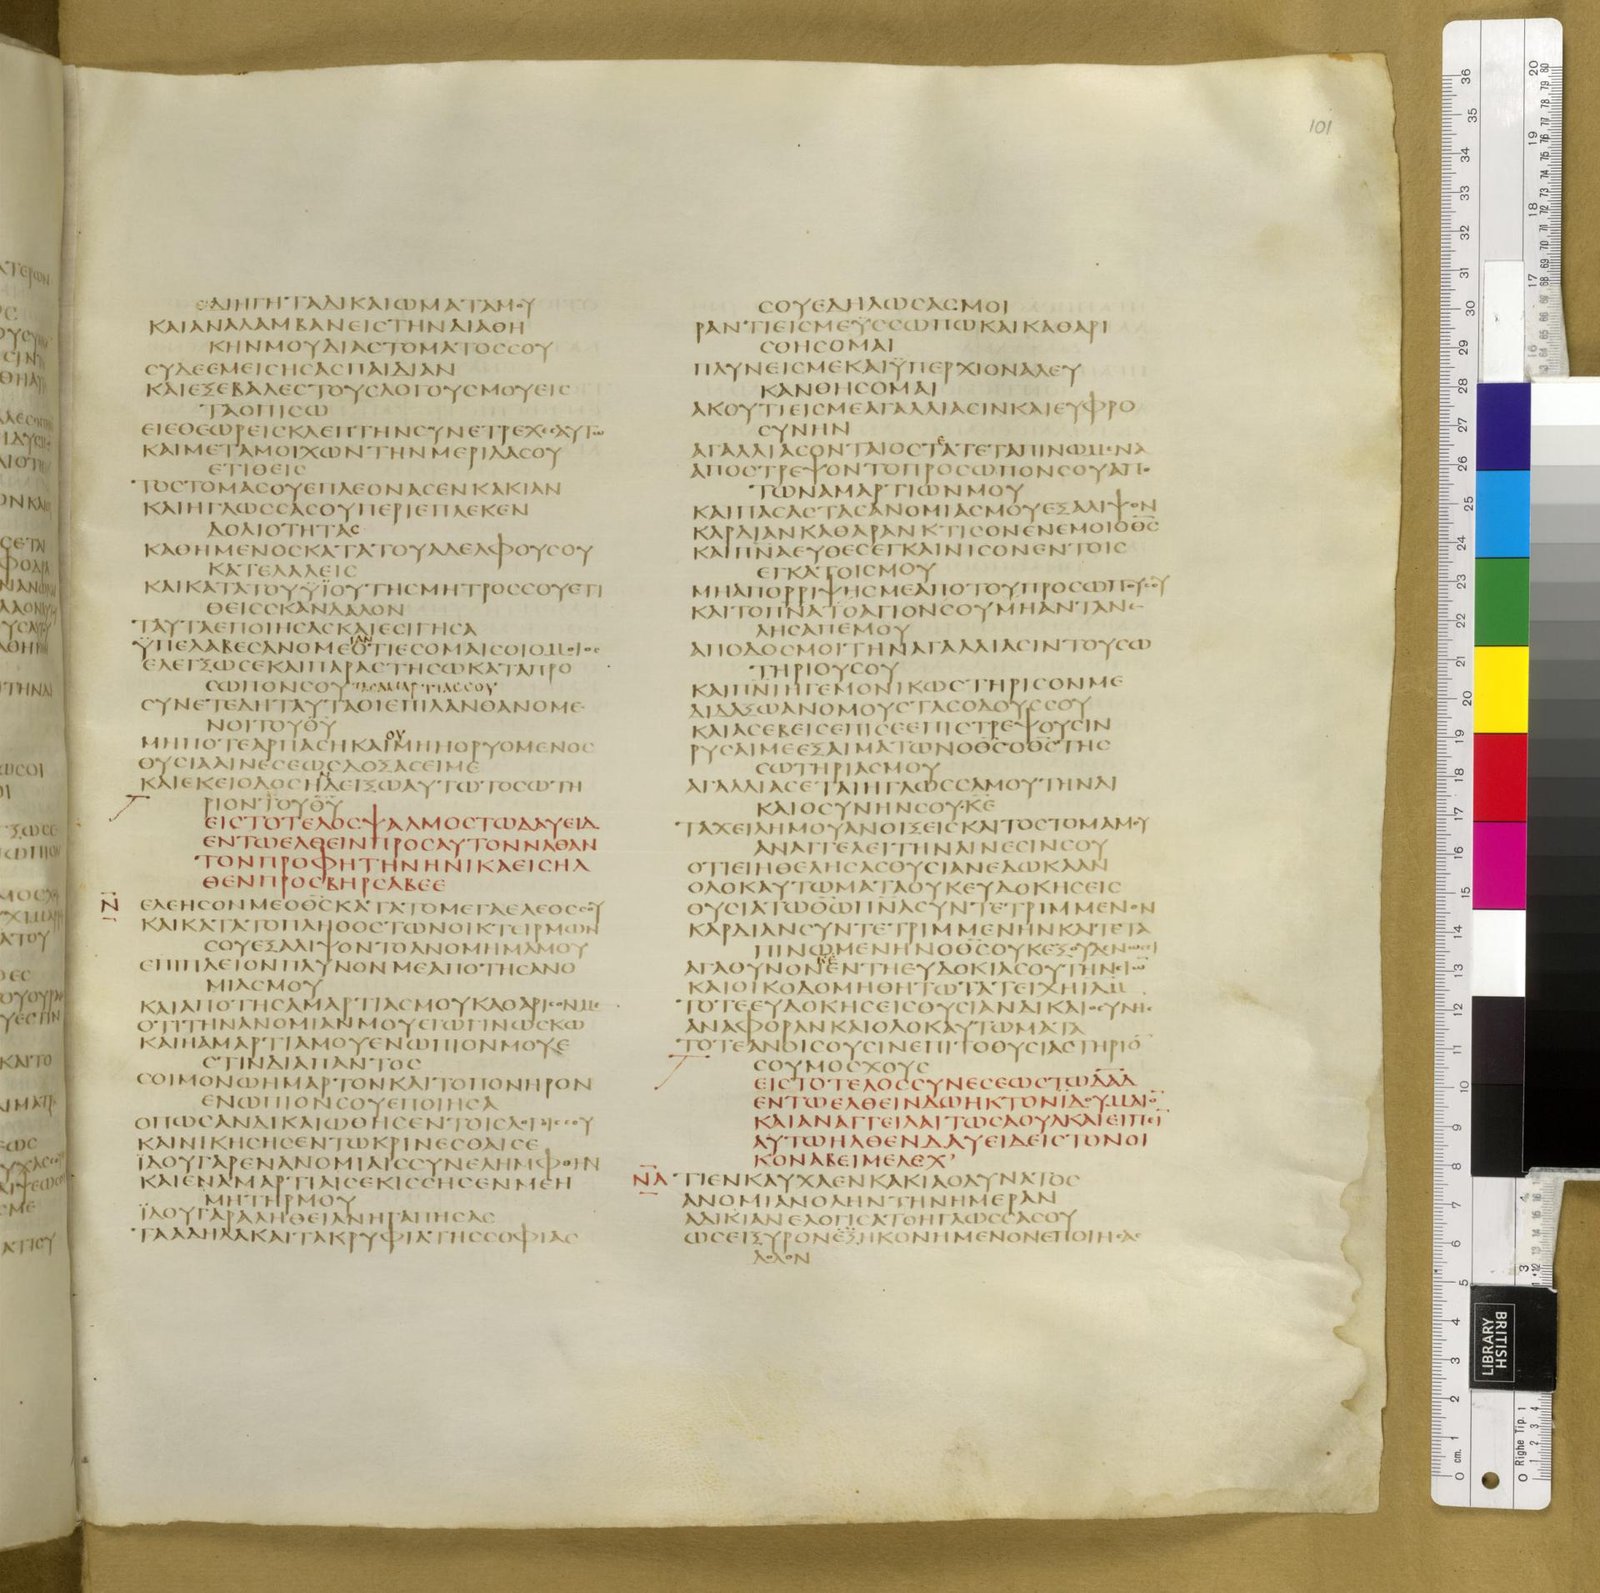 ΔΙΗΓΗΤΑΔΙΚΑΙΩΜΑΤΑΜΟΥ
ΚΑΙΑΝΑΛΑΜΒΑΝΕΙΣΤΗΝΔΙΑΘΗ
ΚΗΝΜΟΥΔΙΑΣΤΟΜΑΤΟΣΣΟΥ
ΣΥΔΕΕΜΕΙΣΗΣΑΣΠΑΙΔΙΑΝ
ΚΑΙΕΞΕΒΑΛΕΣΤΟΥΣΛΟΓΟΥΣΜΟΥΕΙΣ
ΤΑΟΠΙΣΩ
ΕΙΕΘΕΩΡΕΙΣΚΛΕΠΤΗΝΣΥΝΕΤΡΕΧΕΣΑΥΤΩ
ΚΑΙΜΕΤΑΜΟΙΧΩΝΤΗΝΜΕΡΙΔΑΣΟΥ
ΕΤΙΘΕΙΣ
ΤΟΣΤΟΜΑΣΟΥΕΠΛΕΟΝΑΣΕΝΚΑΚΙΑΝ
ΚΑΙΗΓΛΩΣΣΑΣΟΥΠΕΡΙΕΠΛΕΚΕΝ
ΔΟΛΙΟΤΗΤΑΣ
ΚΑΘΗΜΕΝΟΣΚΑΤΑΤΟΥΑΔΕΛΦΟΥΣΟΥ
ΚΑΤΕΛΑΛΕΙΣ
ΚΑΙΚΑΤΑΤΟΥΫΪΟΥΤΗΣΜΗΤΡΟΣΣΟΥΕΤΙ
ΘΕΙΣΣΚΑΝΔΑΛΟΝ
ΤΑΥΤΑΕΠΟΙΗΣΑΣΚΑΙΕΣΙΓΗΣΑ
ΫΠΕΛΑΒΕΣΑΝΟΜΕΟΤΙΕΣΟΜΑΙΣΟΙΟΜΟΙΟΣ
ΕΛΕΓΞΩΣΕΚΑΙΠΑΡΑΣΤΗΣΩΚΑΤΑΠΡΟ
ΣΩΠΟΝΣΟΥΤΑΣΑΜΑΡΤΙΑΣΣΟΥ
ΣΥΝΕΤΕΔΗΤΑΥΤΑΟΙΕΠΙΛΑΝΘΑΝΟΜΕ
ΝΟΙΤΟΥΘΥ
ΜΗΠΟΤΕΑΡΠΑΣΗΚΑΙΜΗΗΟΡΥΟΜΕΝΟΣ
ΘΥΣΙΑΑΙΝΕΣΕΩΣΔΟΞΑΣΕΙΜΕ
ΚΑΙΕΚΕΙΟΔΟΣΗΔΕΙΞΩΑΥΤΩΤΟΣΩΤΗ
ΡΙΟΝΤΟΥΘΥ
ΕΙΣΤΟΤΕΛΟΣΨΑΛΜΟΣΤΩΔΑΥΕΙΔ
ΕΝΤΩΕΛΘΕΙΝΠΡΟΣΑΥΤΟΝΝΑΘΑΝ
ΤΟΝΠΡΟΦΗΤΗΝΗΝΙΚΑΕΙΣΗΛ
ΘΕΝΠΡΟΣΒΗΡΣΑΒΕΕ
Ν ΕΛΕΗΣΟΝΜΕΟΘΣΚΑΤΑΤΟΜΕΓΑΕΛΕΟΣΣΟΥ
ΚΑΙΚΑΤΑΤΟΠΛΗΘΟΣΤΩΝΟΙΚΤΕΙΡΜΩΝ
ΣΟΥΕΞΑΛΙΨΟΝΤΟΑΝΟΜΗΜΑΜΟΥ
ΕΠΙΠΛΕΙΟΝΠΛΥΝΟΝΜΕΑΠΟΤΗΣΑΝΟ
ΜΙΑΣΜΟΥ
ΚΑΙΑΠΟΤΗΣΑΜΑΡΤΙΑΣΜΟΥΚΑΘΑΡΙΣΟΝΜΕ
ΟΤΙΤΗΝΑΝΟΜΙΑΝΜΟΥΕΓΩΓΙΝΩΣΚΩ
ΚΑΙΗΑΜΑΡΤΙΑΜΟΥΕΝΩΠΙΟΝΜΟΥΕ
ΣΤΙΝΔΙΑΠΑΝΤΟΣ
ΣΟΙΜΟΝΩΗΜΑΡΤΟΝΚΑΙΤΟΠΟΝΗΡΟΝ
ΕΝΩΠΙΟΝΣΟΥΕΠΟΙΗΣΑ
ΟΠΩΣΑΝΔΙΚΑΙΩΘΗΣΕΝΤΟΙΣΛΟΓΟΙΣΣΟΥ
ΚΑΙΝΙΚΗΣΗΣΕΝΤΩΚΡΙΝΕΣΘΑΙΣΕ
ΪΔΟΥΓΑΡΕΝΑΝΟΜΙΑΙΣΣΥΝΕΛΗΜΦΘΗΝ
ΚΑΙΕΝΑΜΑΡΤΙΑΙΣΕΚΙΣΣΗΣΕΝΜΕΗ
ΜΗΤΗΡΜΟΥ
ΪΔΟΥΓΑΡΑΛΗΘΕΙΑΝΗΓΑΠΗΣΑΣ
ΤΑΑΔΗΛΑΚΑΙΤΑΚΡΥΦΙΑΤΗΣΣΟΦΙΑΣ
ΣΟΥΕΔΗΛΩΣΑΣΜΟΙ
ΡΑΝΤΙΕΙΣΜΕΫΣΣΩΠΩΚΑΙΚΑΘΑΡΙ
ΣΘΗΣΟΜΑΙ
ΠΛΥΝΕΙΣΜΕΚΑΙΫΠΕΡΧΙΟΝΑΛΕΥ
ΚΑΝΘΗΣΟΜΑΙ
ΑΚΟΥΤΙΕΙΣΜΕΑΓΑΛΛΙΑΣΙΝΚΑΙΕΥΦΡΟ
ΣΥΝΗΝ
ΑΓΑΛΛΙΑΣΟΝΤΑΙΟΣΤΑΤΕΤΑΠΙΝΩΜΕΝΑ
ΑΠΟΣΤΡΕΨΟΝΤΟΠΡΟΣΩΠΟΝΣΟΥΑΠΟ
ΤΩΝΑΜΑΡΤΙΩΝΜΟΥ
ΚΑΙΠΑΣΑΣΤΑΣΑΝΟΜΙΑΣΜΟΥΕΞΑΛΙΨΟΝ
ΚΑΡΔΙΑΝΚΑΘΑΡΑΝΚΤΙΣΟΝΕΝΕΜΟΙΟΘΣ
ΚΑΙΠΝΑΕΥΘΕΣΕΓΚΑΙΝΙΣΟΝΕΝΤΟΙΣ
ΕΓΚΑΤΟΙΣΜΟΥ
ΜΗΑΠΟΡΡΙΨΗΣΜΕΑΠΟΤΟΥΠΡΟΣΩΠΟΥΣΟΥ
ΚΑΙΤΟΠΝΑΤΟΑΓΙΟΝΣΟΥΜΗΑΝΤΑΝΕ
ΛΗΣΑΠΕΜΟΥ
ΑΠΟΔΟΣΜΟΙΤΗΝΑΓΑΛΛΙΑΣΙΝΤΟΥΣΩ
ΤΗΡΙΟΥΣΟΥ
ΚΑΙΠΝΙΗΓΕΜΟΝΙΚΩΣΤΗΡΙΣΟΝΜΕ
ΔΙΔΑΞΩΑΝΟΜΟΥΣΤΑΣΟΔΟΥΣΣΟΥ
ΚΑΙΑΣΕΒΕΙΣΕΠΙΣΕΕΠΙΣΤΡΕΨΟΥΣΙΝ
ΡΥΣΑΙΜΕΕΞΑΙΜΑΤΩΝΟΘΣΟΘΣΤΗΣ
ΣΩΤΗΡΙΑΣΜΟΥ
ΑΓΑΛΛΙΑΣΕΤΑΙΗΓΛΩΣΣΑΜΟΥΤΗΝΔΙ
ΚΑΙΟΣΥΝΗΝΣΟΥΚΕ
ΤΑΧΕΙΛΗΜΟΥΑΝΟΙΞΕΙΣΚΑΙΤΟΣΤΟΜΑΜΟΥ
ΑΝΑΓΓΕΛΕΙΤΗΝΑΙΝΕΣΙΝΣΟΥ
ΟΤΙΕΙΗΘΕΛΗΣΑΣΘΥΣΙΑΝΕΔΩΚΑΑΝ
ΟΛΟΚΑΥΤΩΜΑΤΑΟΥΚΕΥΔΟΚΗΣΕΙΣ
ΘΥΣΙΑΤΩΘΩΠΝΑΣΥΝΤΕΤΡΙΜΜΕΝΟΝ
ΚΑΡΔΙΑΝΣΥΝΤΕΤΡΙΜΜΕΝΗΝΚΑΙΤΕΤΑ
ΠΙΝΩΜΕΝΗΝΟΘΣΟΥΚΕΞΟΥΔΕΝΩΣΕΙ
ΑΓΑΘΥΝΟΝΕΝΤΗΕΥΔΟΚΙΑΣΟΥΤΗΝΣΙΩ
ΚΑΙΟΙΚΟΔΟΜΗΘΗΤΩΤΑΤΕΙΧΗΙΛΜ
ΤΟΤΕΕΥΔΟΚΗΣΕΙΣΘΥΣΙΑΝΔΙΚΑΙΟΣΥΝΗΣ
ΑΝΑΦΟΡΑΝΚΑΙΟΛΟΚΑΥΤΩΜΑΤΑ
ΤΟΤΕΑΝΟΙΣΟΥΣΙΝΕΠΙΤΟΘΥΣΙΑΣΤΗΡΙΟ
ΣΟΥΜΟΣΧΟΥΣ
ΕΙΣΤΟΤΕΛΟΣΣΥΝΕΣΕΩΣΤΩΔΑΔ
ΕΝΤΩΕΛΘΕΙΝΔΩΗΚΤΟΝΙΔΟΥΜΑΙΟ
ΚΑΙΑΝΑΓΓΕΙΛΑΙΤΩΣΑΟΥΛΚΑΙΕΙΠΕΙ
ΑΥΤΩΗΛΘΕΝΔΑΥΕΙΔΕΙΣΤΟΝΟΙ
ΚΟΝΑΒΕΙΜΕΛΕΧ
ΝΑ ΤΙΕΝΚΑΥΧΑΕΝΚΑΚΙΑΟΔΥΝΑΤΟΣ
ΑΝΟΜΙΑΝΟΛΗΝΤΗΝΗΜΕΡΑΝ
ΑΔΙΚΙΑΝΕΛΟΓΙΣΑΤΟΗΓΛΩΣΣΑΣΟΥ
ΩΣΕΙΞΥΡΟΝΕΞΗΚΟΝΗΜΕΝΟΝΕΠΟΙΗΣΑΣ
ΔΟΛΟΝ
101
BRITISH
LIBRARY
Righe Tip. 1